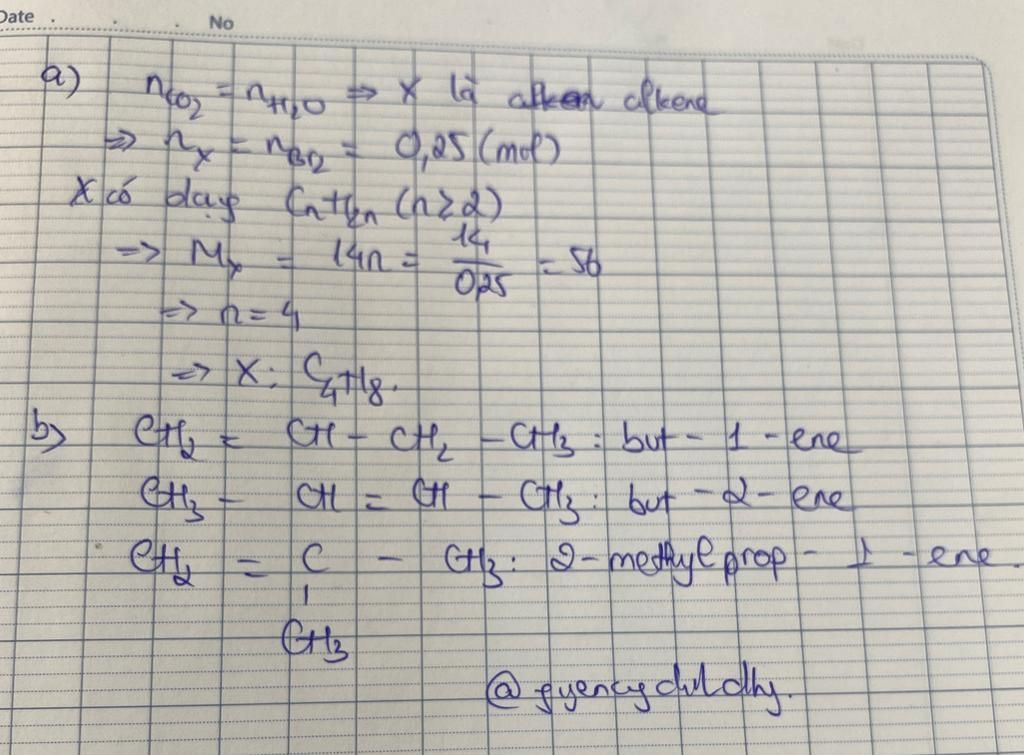 Date . . . No
a) nCO2 = nH2O ⇒ X là alkene
⇒ nX = nBr2 = 0,25 (mol)
X có dạng CnH2n (n ≥ 2)
⇒ MX = 14n = 14/0,25 = 56
⇒ n = 4
⇒ X: C4H8.
b) CH2 = CH - CH2 - CH3 : but - 1 - ene
CH3 - CH = CH - CH3 : but - 2 - ene
CH2 = C - CH3 : 2 - methyl prop - 1 - ene.
CH3